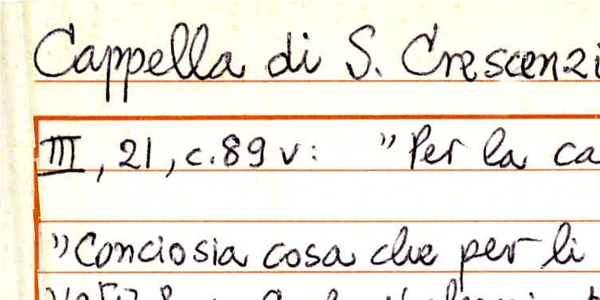 Cappella di S. Crescenzi
III, 21, c. 89 v: "Per la ca
"Conciosia cosa che per li